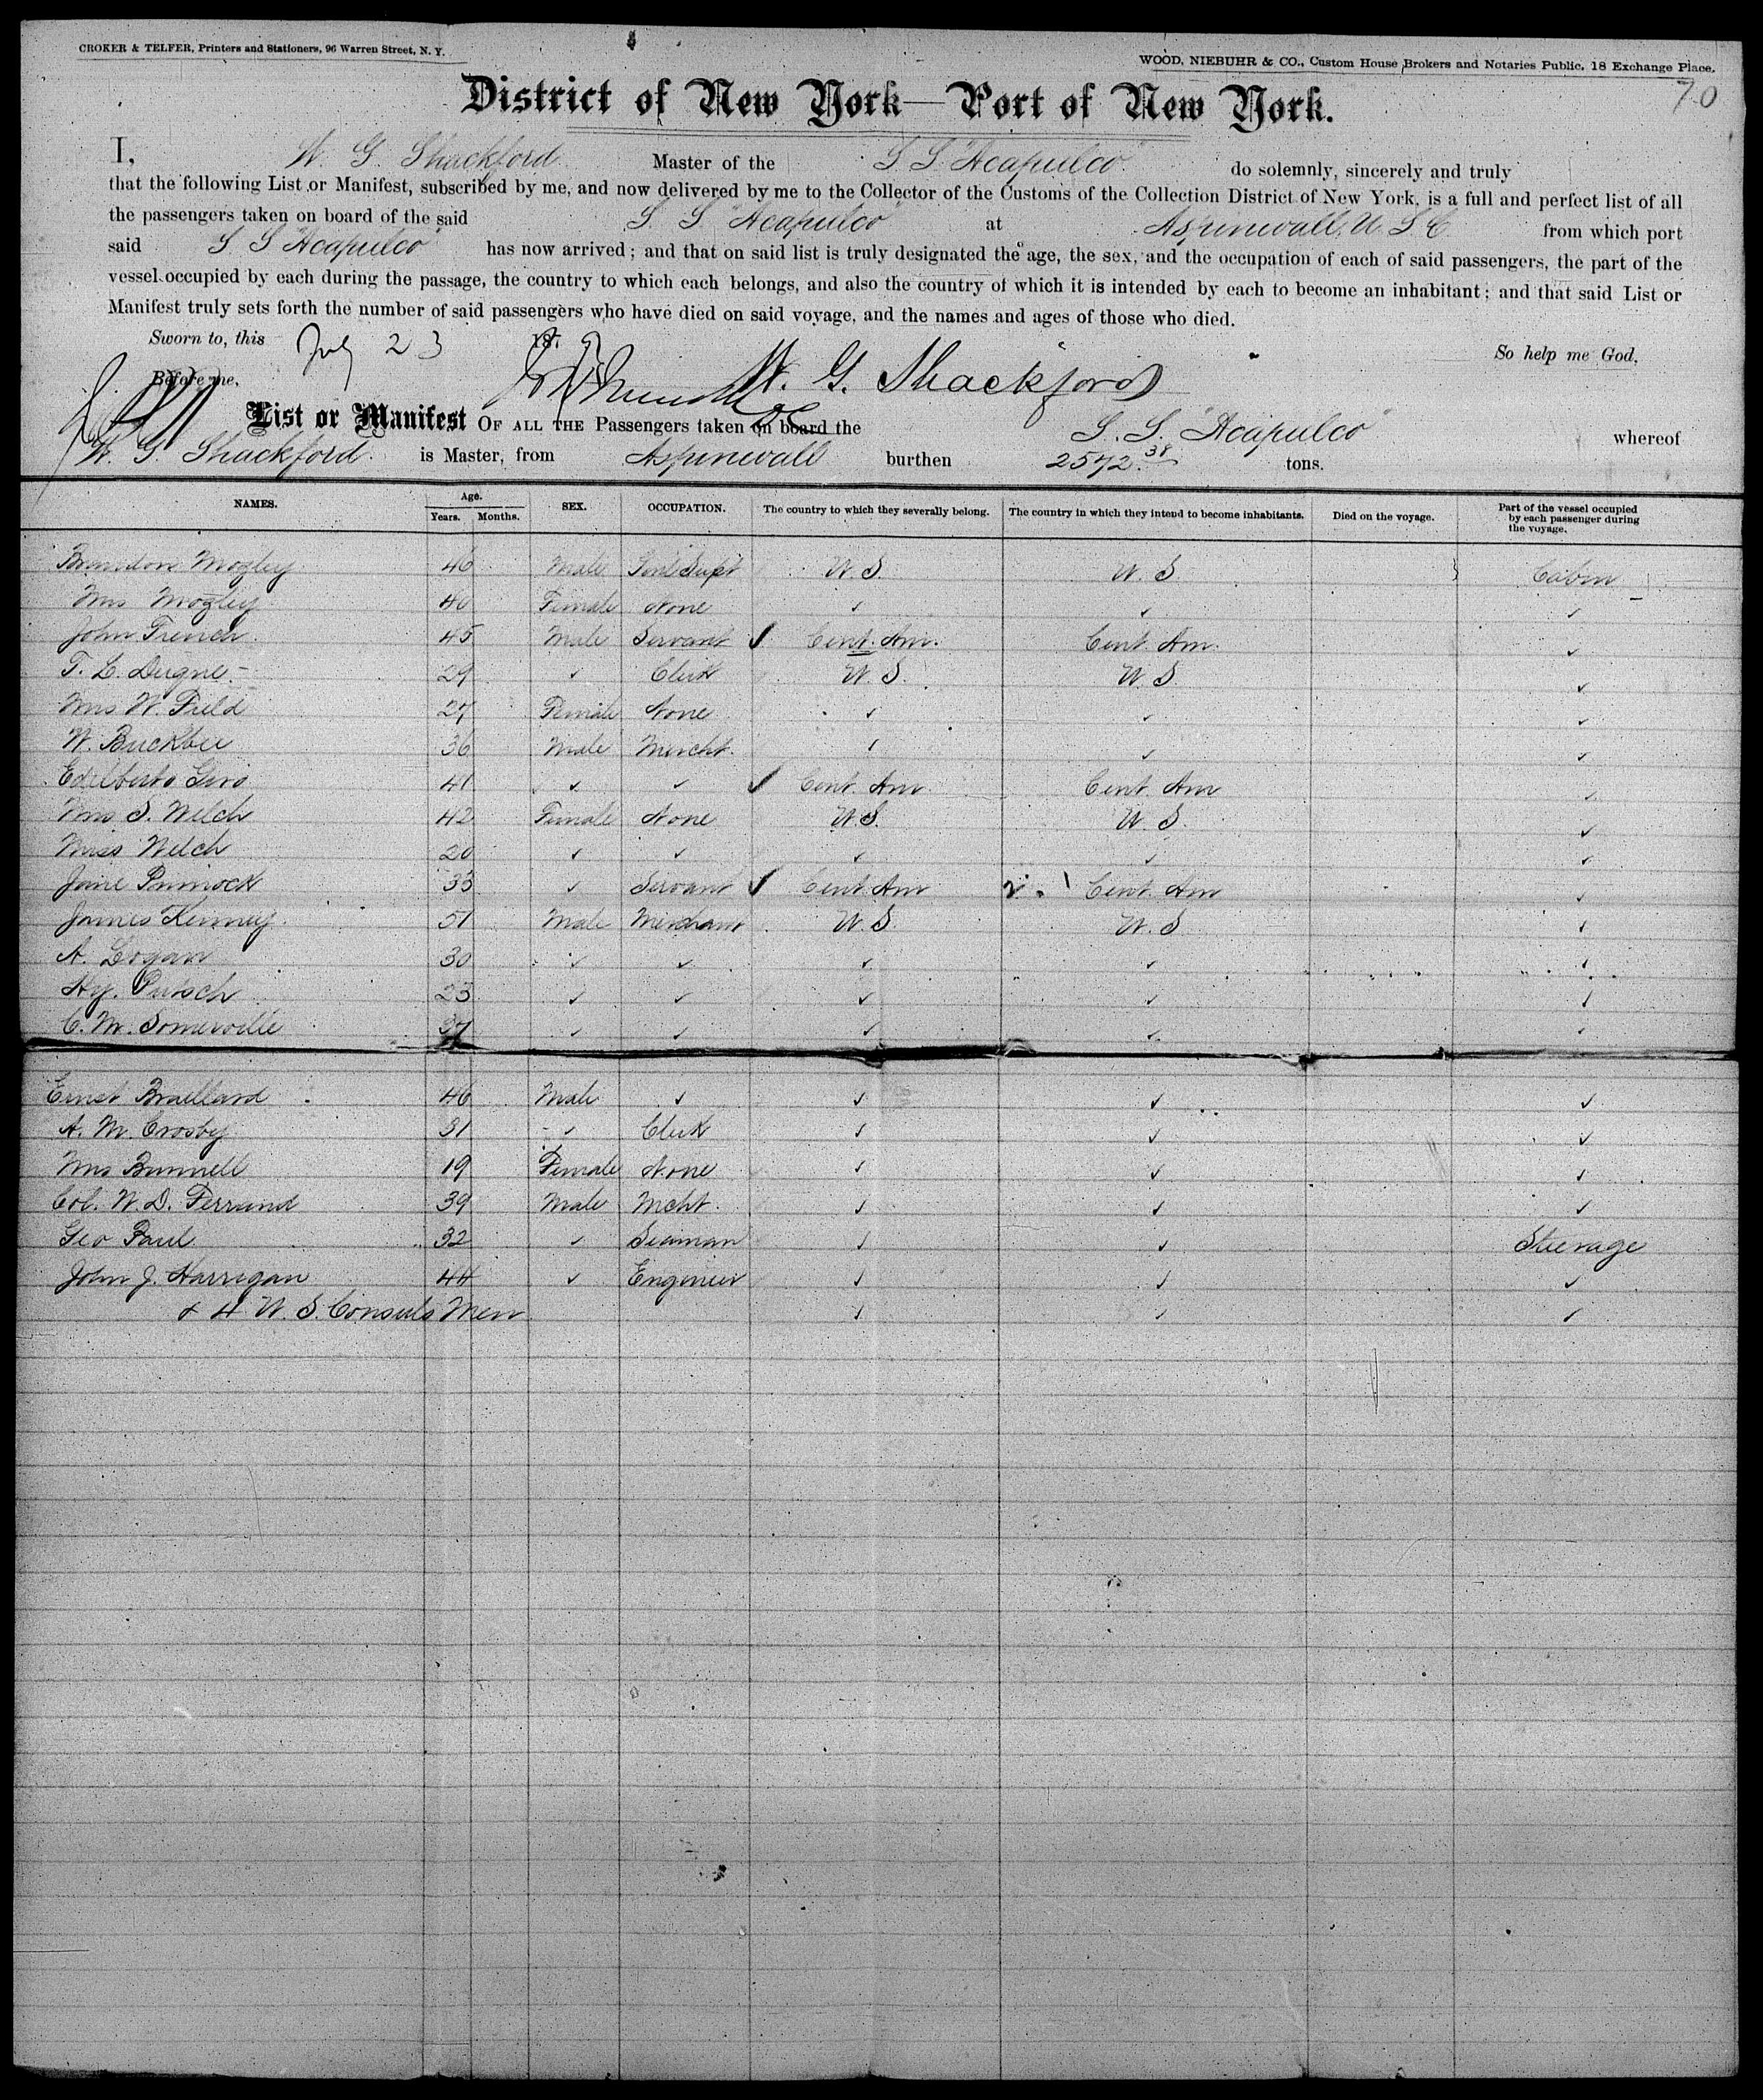 CROKER & TELFER, Printers and Stationers, 96 Warren Street, N. Y.
WOOD, NIEBUHR & CO., Custom House Brokers and Notaries Public, 18 Exchange Place.
70
District of New York—Port of New York.
I, W. G. Shackford Master of the S. S. "Acapulco" do solemnly, sincerely and truly
that the following List or Manifest, subscribed by me, and now delivered by me to the Collector of the Customs of the Collection District of New York, is a full and perfect list of all
the passengers taken on board of the said S. S. "Acapulco" at Aspinwall, U. S. C. from which port
said S. S "Acapulco" has now arrived; and that on said list is truly designated the age, the sex, and the occupation of each of said passengers, the part of the
vessel occupied by each during the passage, the country to which each belongs, and also the country of which it is intended by each to become an inhabitant; and that said List or
Manifest truly sets forth the number of said passengers who have died on said voyage, and the names and ages of those who died.
Sworn to, this July 23 18 So help me God,
Before me, W. G. Shackford
List or Manifest OF ALL THE Passengers taken on board the S. S. "Acapulco" whereof
W. G. Shackford is Master, from Aspinwall burthen 2572 38 tons.
NAMES. Age. Years. Months. SEX. OCCUPATION. The country to which they severally belong. The country in which they intend to become inhabitants. Died on the voyage. Part of the vessel occupied by each passenger during the voyage.
Brandon Mozley 46 Male Supt U. S. U. S. Cabin
Mrs Mozley 40 Female None ✓ ✓ ✓
John French 45 Male Servant ✓ Cent. Am. Cent Am. ✓
T. L. 29 ✓ Clerk U. S. U. S. ✓
Mrs W. Field 27 Female None ✓ ✓ ✓
W. Buckbee 36 Male Mercht. ✓ ✓ ✓
Edilberto Giro 41 ✓ ✓ ✓ Cent. Am. Cent Am ✓
Mrs S. Welch 42 Female None U. S. U. S. ✓
Miss Welch 20 ✓ ✓ ✓ ✓ ✓
Jane Pinnock 33 ✓ Servant ✓ Cent Am Cent. Am ✓
James Kenney 51 Male Merchant U. S. U. S ✓
A. Logan 30 ✓ ✓ ✓ ✓ ✓
Hy. 23 ✓ ✓ ✓ ✓ ✓
C. M. Somerville 37 ✓ ✓ ✓ ✓ ✓
Ernst Braillard 46 Male ✓ ✓ ✓ ✓
A. M. Crosby 31 ✓ Clerk ✓ ✓ ✓
Mrs Bunnell 19 Female None ✓ ✓ ✓
Col. W. D. Ferrand 39 Male Mcht. ✓ ✓ ✓
Geo Paul 32 ✓ Seaman ✓ ✓ Steerage
John J. Harrigan 44 ✓ Engineer ✓ ✓ ✓
& 4 U. S. Consuls Men ✓ ✓ ✓